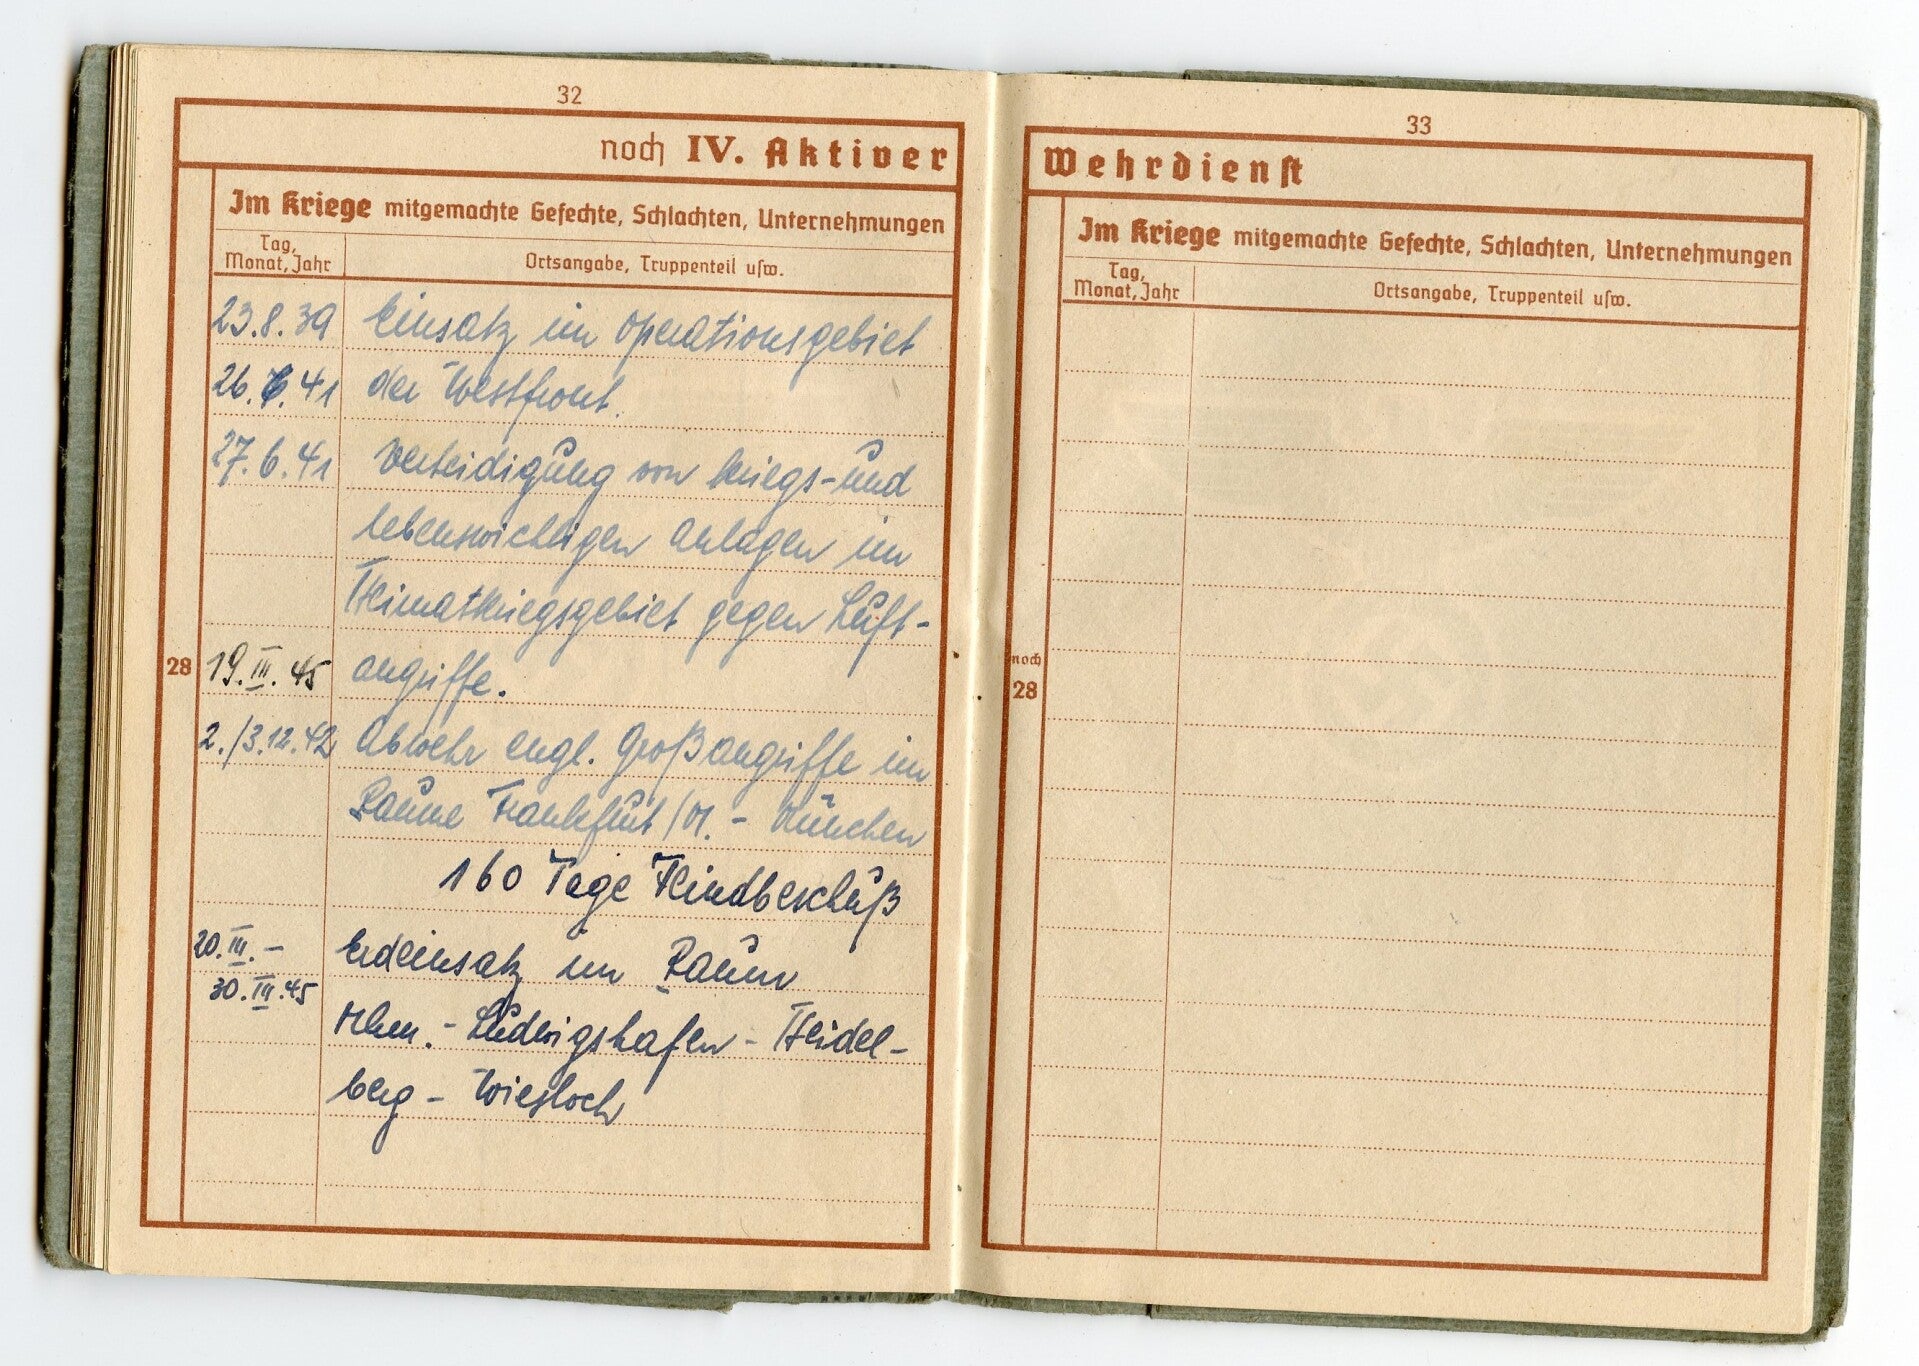 32
noch IV. Aktiver
Im Kriege mitgemachte Gefechte, Schlachten, Unternehmungen
Tag,
Monat, Jahr
Ortsangabe, Truppenteil usw.
23.8.39 Einsatz im Operationsgebiet
26.6.41 der Westfront.
27.6.41 Verteidigung von kriegs- und
lebenswichtigen Anlagen im
Heimatkriegsgebiet gegen Luft-
28 19.III.45 angriffe.
2./3.12.42 Abwehr engl. Großangriffe im
Raume Frankfurt/M. - München
160 Tage Feindbeschuß
20.III.- Erdeinsatz im Raum
30.III.45
- Ludwigshafen - Heidel-
berg - Wiesloch
33
Wehrdienst
Im Kriege mitgemachte Gefechte, Schlachten, Unternehmungen
Tag,
Monat, Jahr
Ortsangabe, Truppenteil usw.
noch
28